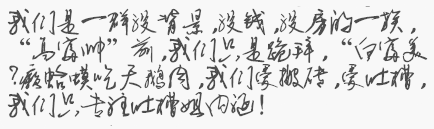 我们是一群没背景,没钱,没房的一族,
“高富帅”前,我们只是跪拜,“白富美
?癞蛤蟆吃天鹅肉,我们爱搬砖,爱吐槽,
我们只专注吐槽姐内涵!